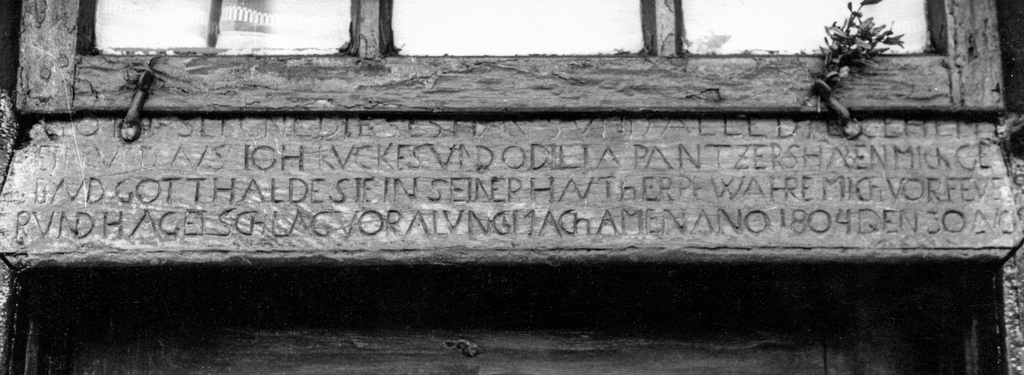 GOTT SEGNE DIESES HAVS VND ALLE DI GEHEN
EIN VND AVS IOH RVCKES VND ODILIA PANTZERS HABEN MICH GE
BAVD GOTT HALDE SIE IN SEINER HAVT HERR BEWAHRE MICH VOR FEVE
R VND HAGELSCHLAG VOR ALVNGIMACH AMEN ANO 1804 DEN 30 AVGS